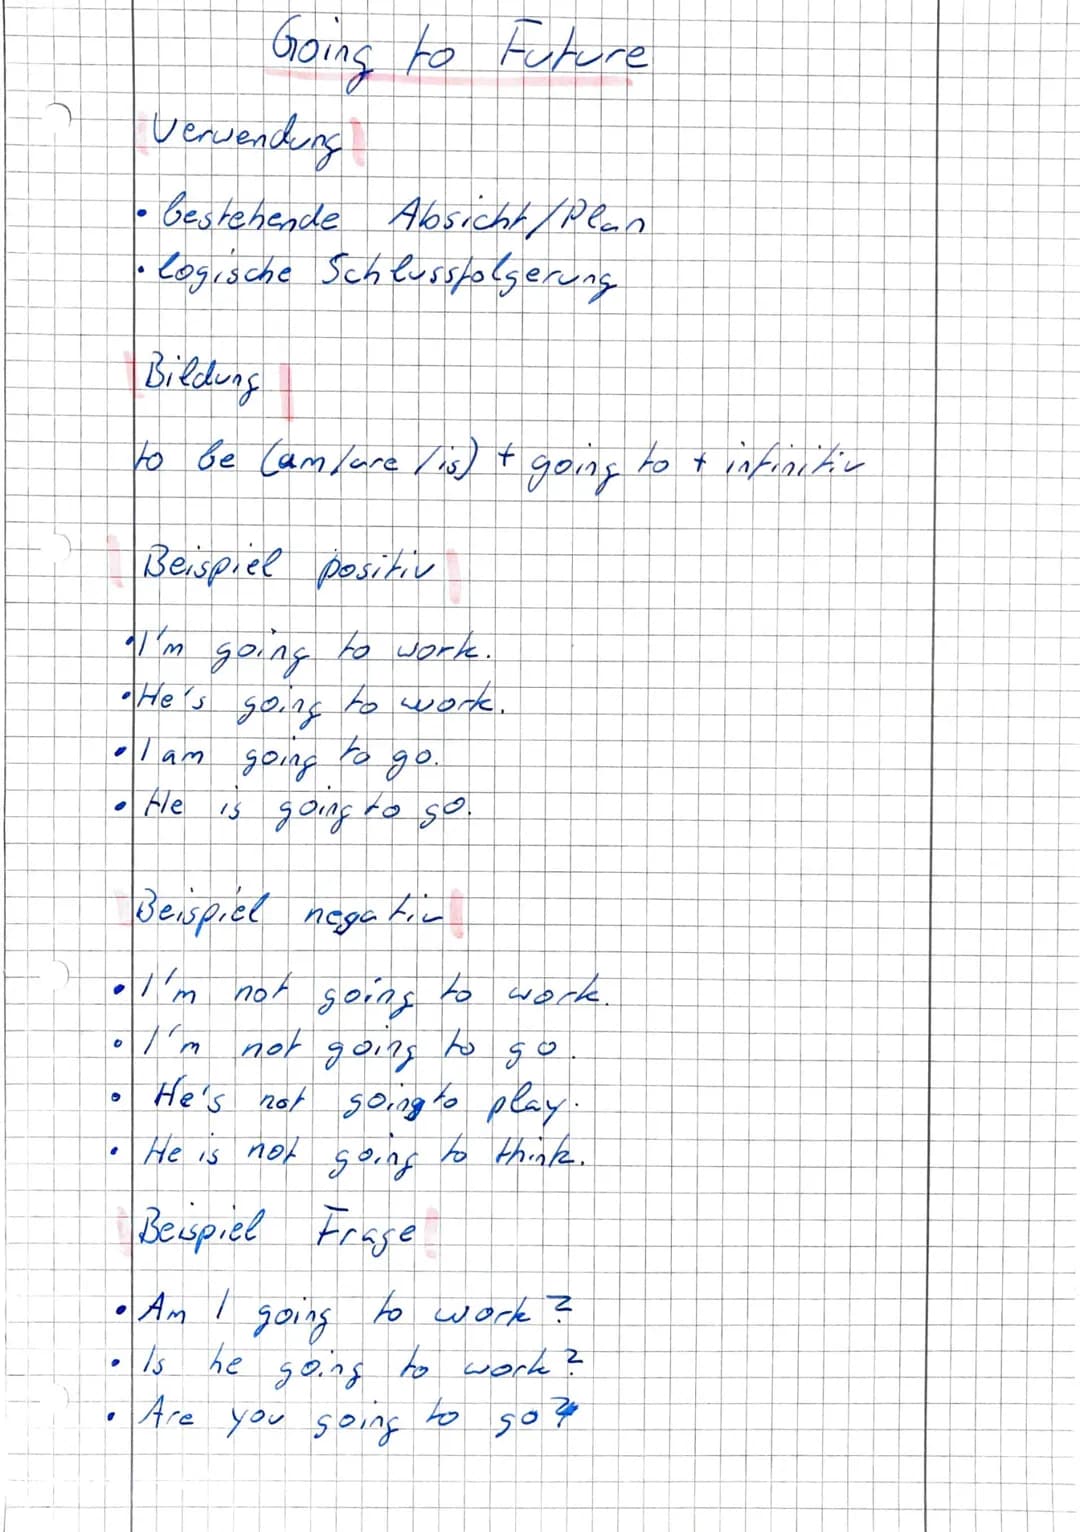 Going to Future
Verwendung
• bestehende Absicht/Plan
• logische Schlussfolgerung
Bildung
to be (am/are/is) + going to + infinitiv
Beispiel positiv
• I'm going to work.
• He's going to work.
• I am going to go.
• He is going to go.
Beispiel negativ
• I'm not going to work.
• I'm not going to go.
• He's not going to play.
• He is not going to think.
Beispiel Frage
• Am I going to work?
• Is he going to work?
• Are you going to go?